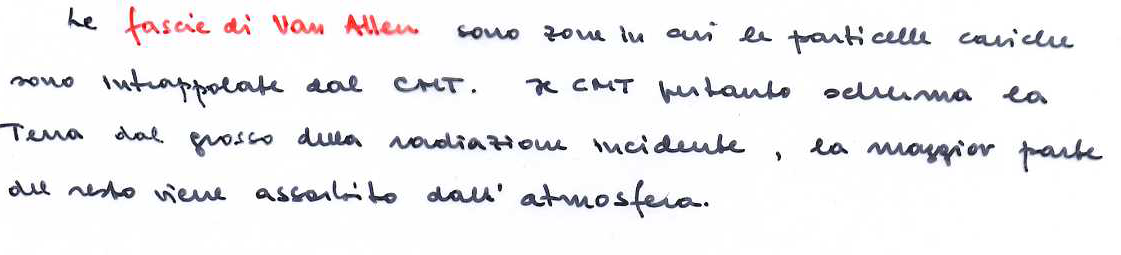 Le fascie di Van Allen sono zone in cui le particelle cariche
sono intrappolate dal CMT. Il CMT pertanto scherma la
Terra dal grosso della radiazione incidente, la maggior parte
del resto viene assorbito dall'atmosfera.